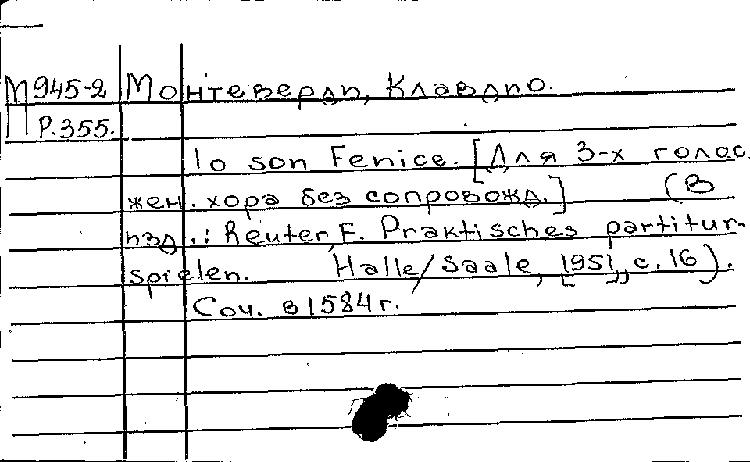 М945-2 Монтеверди, Клавдио.
Р.355.
Io son Fenice. [Для 3-х голос.
жен. хора без сопровожд.] (В
изд.: Reuter, F. Praktisches partitur-
spielen. Halle/Saale, [1951], с. 16).
Соч. в 1584 г.